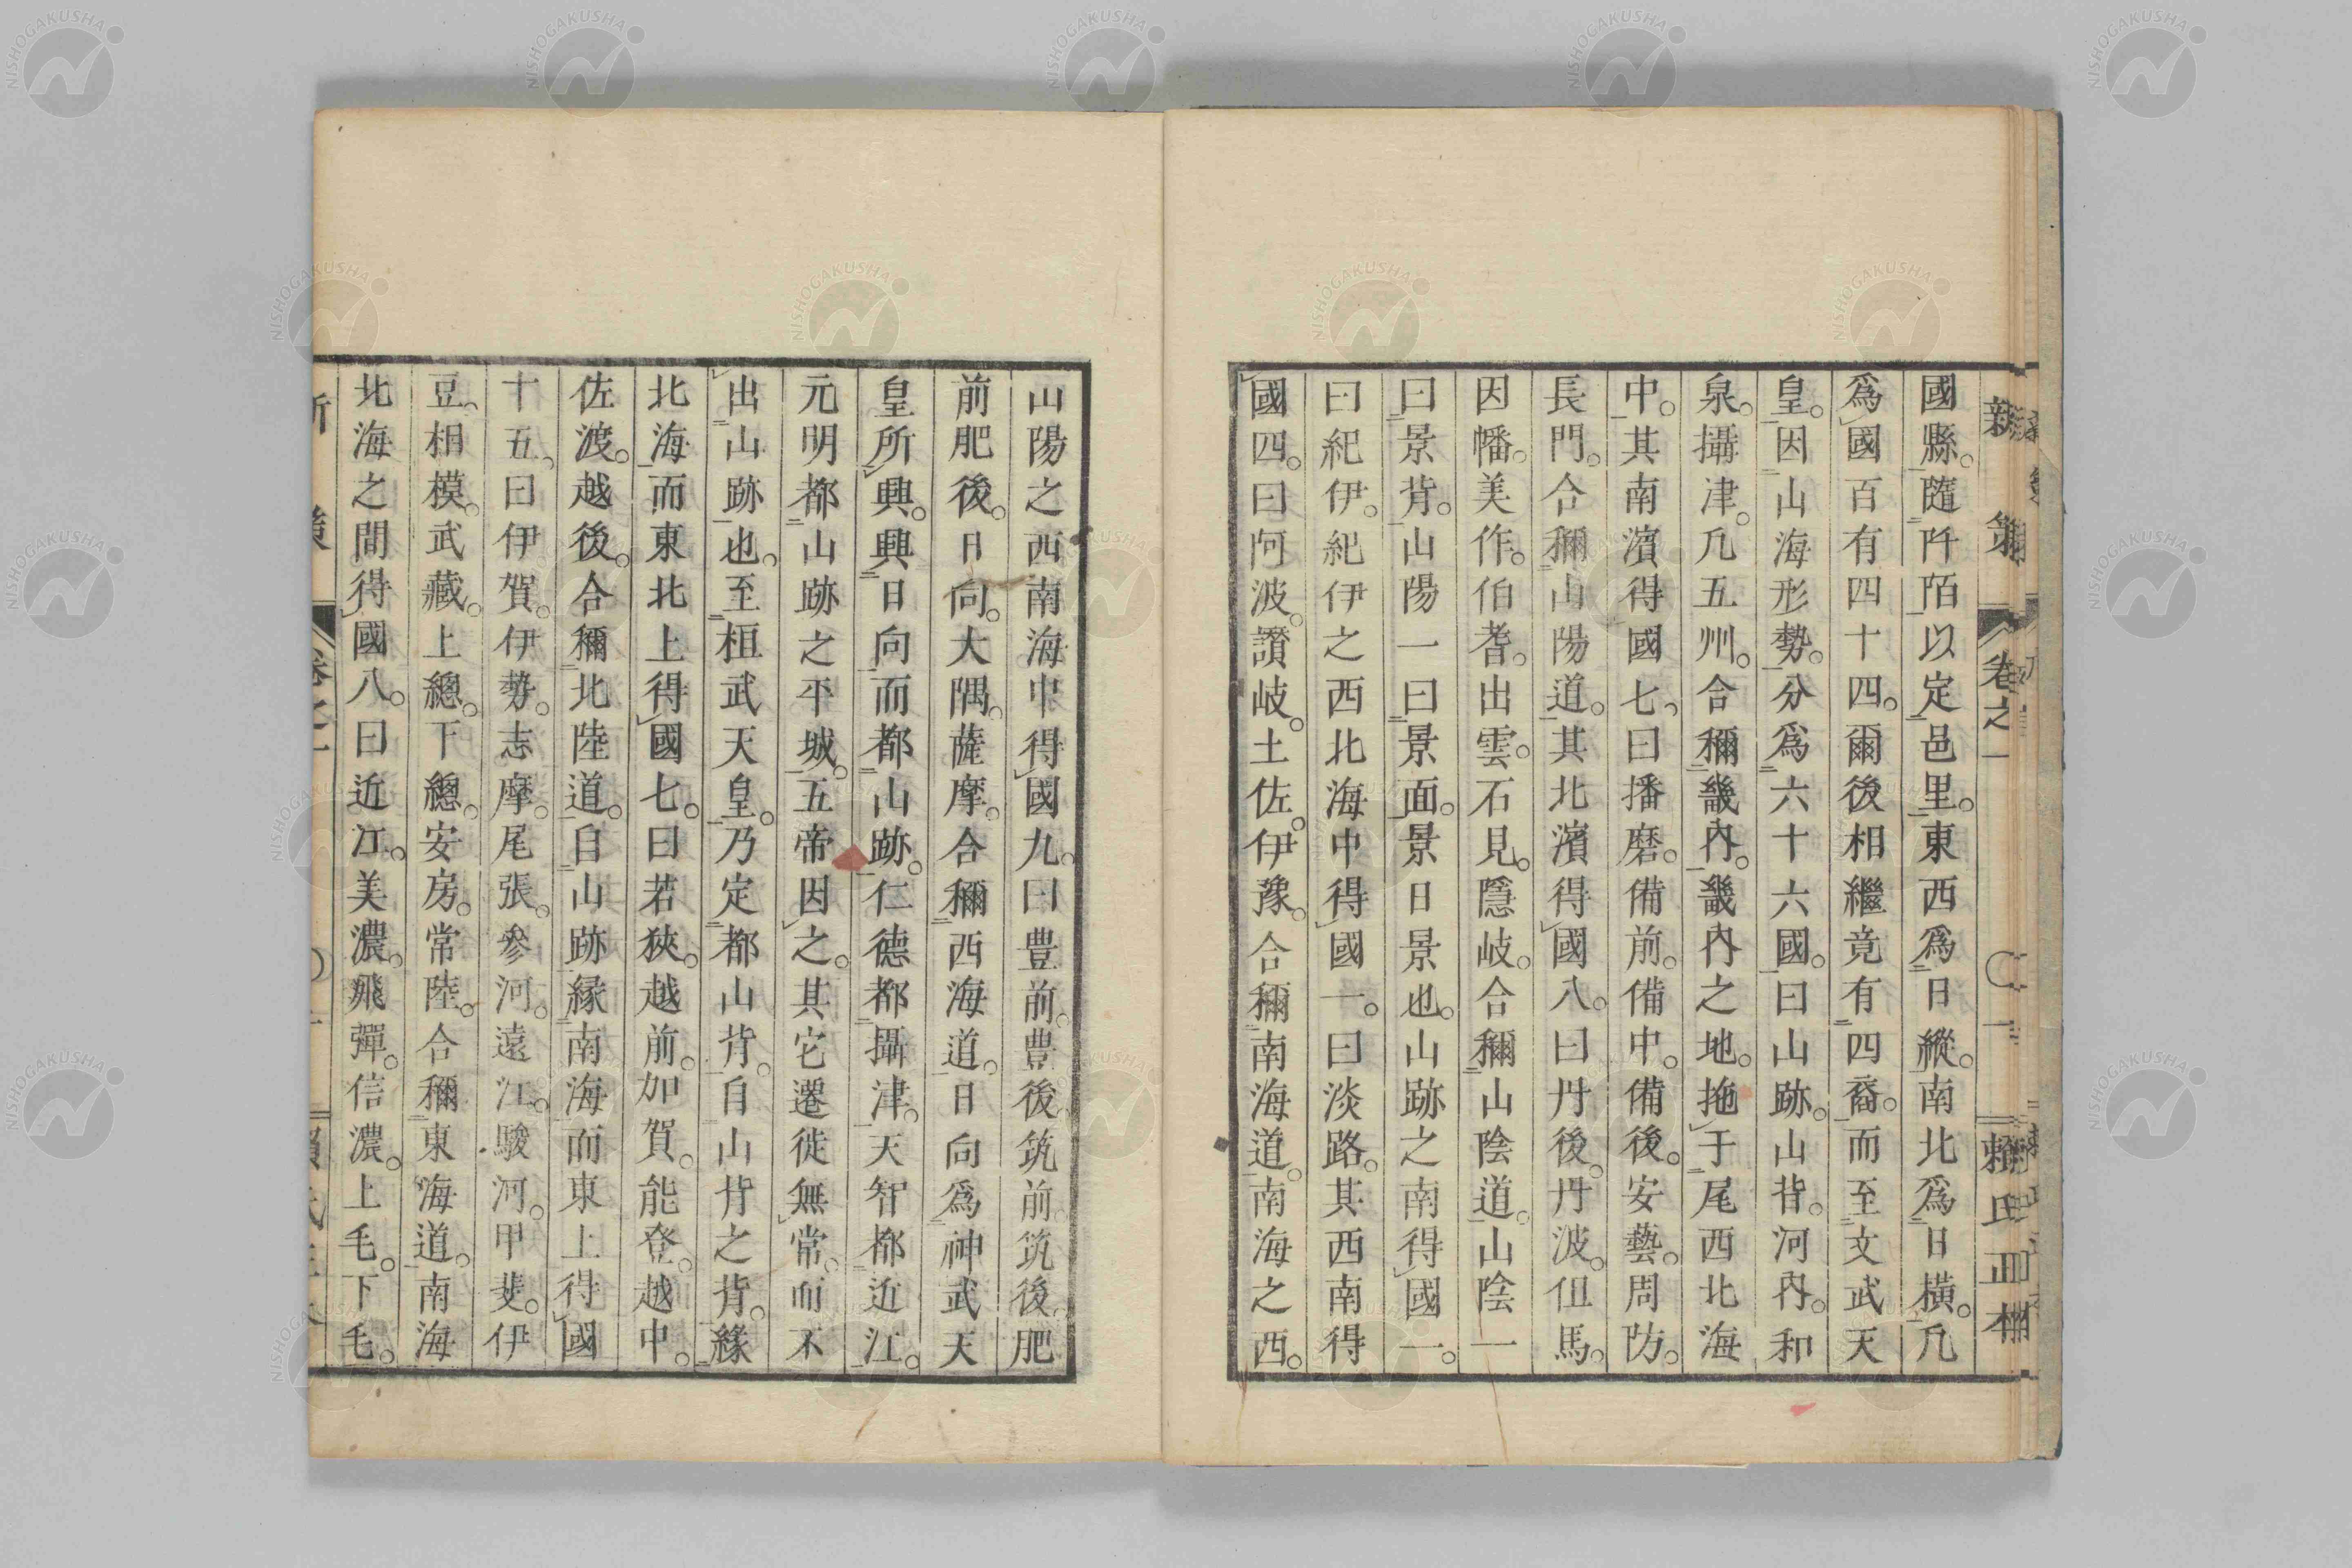 新策 卷之一 〇二 賴氏正本
國縣。隨阡陌以定邑里。東西爲日縱。南北爲日橫。凡
爲國百有四十四。爾後相繼竟有四裔。而至文武天
皇。因山海形勢。分爲六十六國。曰山跡。山背。河內。和
泉。攝津。凡五州。合稱畿內。畿內之地。拖于尾西北海
中。其南濱得國七。曰播磨。備前。備中。備後。安藝。周防。
長門。合稱山陽道。其北濱得國八。曰丹後。丹波。伹馬。
因幡。美作。伯耆。出雲。石見。隱岐。合稱山陰道。山陰一
曰景背。山陽一曰景面。景日景也。山跡之南得國一。
曰紀伊。紀伊之西北海中得國一。曰淡路。其西南得
國四。曰阿波。讃岐。土佐。伊豫。合稱南海道。南海之西。
山陽之西南海中得國九。曰豊前。豊後。筑前。筑後。肥
前肥後。日向。大隅。薩摩。合稱西海道。日向爲神武天
皇所興。興日向而都山跡。仁德都攝津。天智都近江。
元明都山跡之平城。五帝因之。其它遷徙無常。而不
出山跡也。至桓武天皇。乃定都山背。自山背之背。緣
北海而東北上得國七。曰若狹。越前。加賀。能登。越中。
佐渡。越後。合稱北陸道。自山跡緣南海而東上得國
十五。曰伊賀。伊勢。志摩。尾張。參河。遠江。駿河。甲斐。伊
豆。相模。武藏。上總。下總。安房。常陸。合稱東海道。南海
北海之間得國八。曰近江。美濃。飛彈。信濃。上毛。下毛。